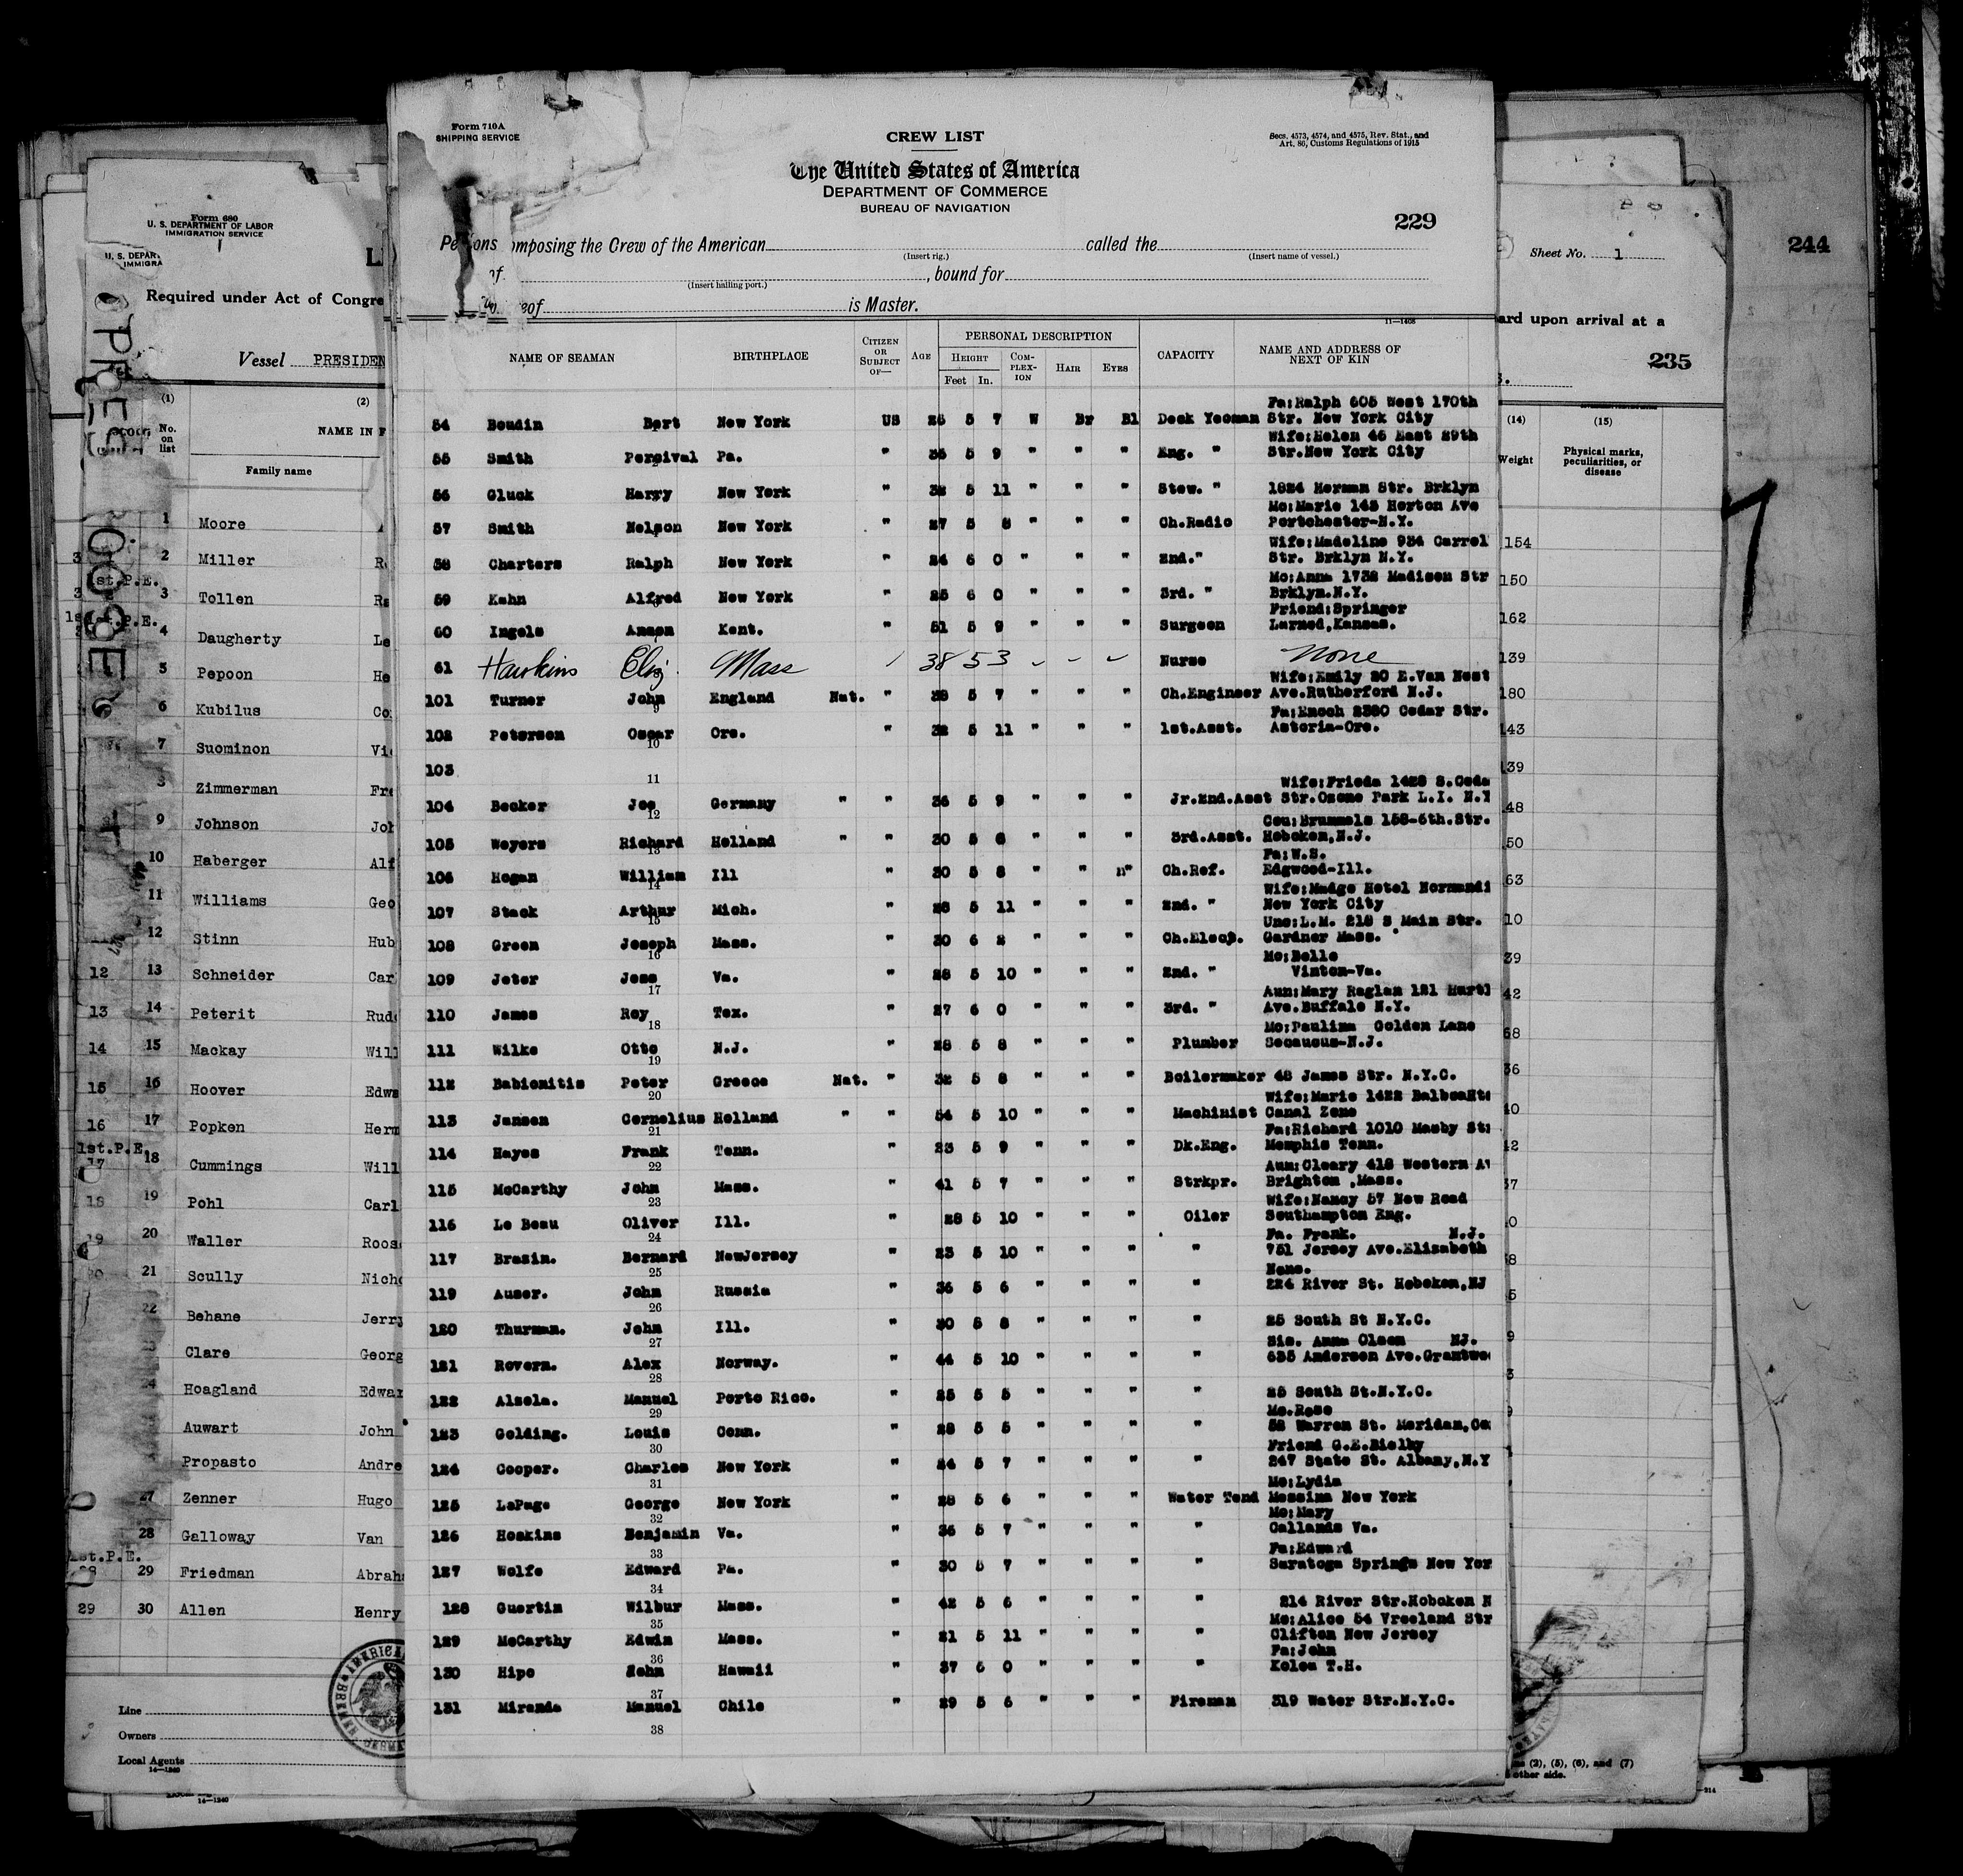 Form 710A
SHIPPING SERVICE
CREW LIST
Secs. 4573, 4574, and 4575, Rev. Stat., and
Art. 86, Customs Regulations of 1915
The United States of America
DEPARTMENT OF COMMERCE
BUREAU OF NAVIGATION
229
Persons composing the Crew of the American called the
(Insert rig.) (Insert name of vessel.)
of , bound for
(Insert hailing port.)
eof is Master.
11—1408
NAME OF SEAMAN BIRTHPLACE CITIZEN OR SUBJECT OF— AGE PERSONAL DESCRIPTION CAPACITY NAME AND ADDRESS OF NEXT OF KIN
HEIGHT COMPLEXION HAIR EYES
Feet In.
Fa:Ralph 605 West 170th
54 Boudin Bert New York US 26 5 7 W Br Bl Deck Yeoman Str. New York City
Wife:Helen 46 East 29th
55 Smith Percival Pa. " 36 5 9 " " " Eng. " Str.New York City
56 Gluck Harry New York " 32 5 11 " " " Stew. " 1824 Herman Str. Brklyn
Mo:Marie 145 Horton Ave
57 Smith Nelson New York " 27 5 8 " " " Ch.Radio Portchester-N.Y.
Wife:Madeline 934 Carrel
58 Charters Ralph New York " 24 6 0 " " " 2nd." Str. Brklyn N.Y.
Mo:Anna 1738 Madison Str
59 Kahn Alfred New York " 25 6 0 " " " 3rd. " Brklyn.N.Y.
Friend:Springer
60 Ingels Anson Kent. " 51 5 9 " " " Surgeon Larned,Kansas.
61 Hawkins Eliz. Mass 38 5 3 Nurse None
Wife:Emily 20 E.Van Nest
101 Turner John England Nat. " 38 5 7 " " " Ch.Engineer Ave.Rutherford N.J.
9
Fa:Enoch 2380 Cedar Str.
102 Peterson Oscar Ore. " 32 5 11 " " " 1st.Asst. Astoria-Ore.
10
103
11
Wife:Frieda 1428 S.Ceda
104 Becker Joe Germany " " 36 5 9 " " " Jr.2nd.Asst Str.Ozone Park L.I. N.Y
12
Cou:Brummels 158-6th.Str.
105 Weyers Richard Holland " " 30 5 6 " " " 3rd.Asst. Hoboken,N.J.
13
Fa:W.S.
106 Hogan William Ill " 30 5 8 " " n" Ch.Ref. Edgwood-Ill.
14
Wife:Madge Hotel Normandi
107 Stack Arthur Mich. " 28 5 11 " " " 2nd. " New York City
15
Unc:L.M. 218 S Main Str.
108 Green Joseph Mass. " 30 6 2 " " " Ch.Elect. Gardner Mass.
16
Mo:Belle
109 Jeter Jess Va. " 28 5 10 " " " 2nd. " Vinton-Va.
17
Aun:Mary Raglan 121 Hurtl
110 James Roy Tex. " 27 6 0 " " " 3rd. " Ave.Buffalo N.Y.
18
Mo:Paulina Golden Lane
111 Wilke Otto N.J. " 28 5 8 " " " Plumber Secaucus-N.J.
19
112 Babionitis Peter Greece Nat. " 32 5 8 " " " Boilermaker 48 James Str. N.Y.C.
20
Wife:Marie 1422
113 Jansen Cornelius Holland " " 54 5 10 " " " Machinist Canal Zone
21
Fa:Richard 1010 Mosby St
114 Hayes Frank Tenn. " 23 5 9 " " " Dk.Eng. Memphis Tenn.
22
Aun:Cleary 418 Western A
115 McCarthy John Mass. " 41 5 7 " " " Strkpr. Brighton ,Mass.
23
Wife:Nancy 57 New Road
116 Le Beau Oliver Ill. " 28 5 10 " " " Oiler Southampton Eng.
24
Fa. Frank. N.J.
117 Brazin. Bernard NewJersey " 23 5 10 " " " " 751 Jersey Ave.Elizabeth
25
None.
119 Auser. John Russia " 36 5 6 " " " " 224 River St. Hoboken,NJ
26
120 Thurman. John Ill. " 30 5 8 " " " " 25 South St N.Y.C.
27
Sis. Anna Olsen NJ.
121 Rovern. Alex Norway. " 44 5 10 " " " " 635 Anderson Ave.Grantwo
28
122 Alsola. Manuel Porto Rico. " 25 5 5 " " " " 25 South St.N.Y.C.
29
Mo.Rose
123 Golding. Louis Conn. " 28 5 5 " " " " 52 Warren St. Meriden,Co
30
Friend G.E.Bielby
124 Cooper. Charles New York " 24 5 7 " " " " 247 State St. Albany,N.Y
31
Mo:Lydia
125 LaPage George New York " 28 5 6 " " " Water Tend Messina New York
32
Mo:Mary
126 Hoskins Benjamin Va. " 36 5 7 " " " " Callands Va.
33
Fa:Edward
127 Wolfe Edward Pa. " 30 5 7 " " " " Saratoga Springs New Yor
34
128 Guertin Wilbur Mass. " 42 5 6 " " " " 214 River Str.Hoboken N
35
Mo:Alice 54 Vreeland Str
129 McCarthy Edwin Mass. " 21 5 11 " " " " Clifton New Jersey
36
Fa:John
130 Hipe John Hawaii " 37 6 0 " " " " Kolea T.H.
37
131 Miranda Manuel Chile " 29 5 6 " " " Fireman 319 Water Str.N.Y.C.
38
Form 680
U. S. DEPARTMENT OF LABOR
IMMIGRATION SERVICE
U. S. DEPAR
IMMIGRA
Required under Act of Congre
Vessel PRESIDEN
PRES
(1) (2)
No. on list NAME IN F
Family name
1 Moore
2 Miller
1st.P.E.
3 Tollen
4 Daugherty Le
5 Pepoon He
6 Kubilus Co
7 Suominon Vi
Zimmerman Fr
9 Johnson Joh
10 Haberger Alf
11 Williams Geo
12 Stinn Hub
12 13 Schneider Car
13 14 Peterit Rud
14 15 Mackay Will
15 16 Hoover Edwa
16 17 Popken Herm
1st.P.E.
17 18 Cummings Will
18 19 Pohl Carl
19 20 Waller Roos
20 21 Scully Nich
22 Behane Jerry
Clare Georg
24 Hoagland Edwar
Auwart John
Propasto Andre
27 Zenner Hugo
28 Galloway Van
1st.P.E.
29 Friedman Abrah
29 30 Allen Henry
Line
Owners
Local Agents
14—1240
14—1240
244
Sheet No. 1
ard upon arrival at a
235
(14) (15)
Weight Physical marks, peculiarities, or disease
154
150
162
139
180
143
(2), (5), (6), and (7)
other side.